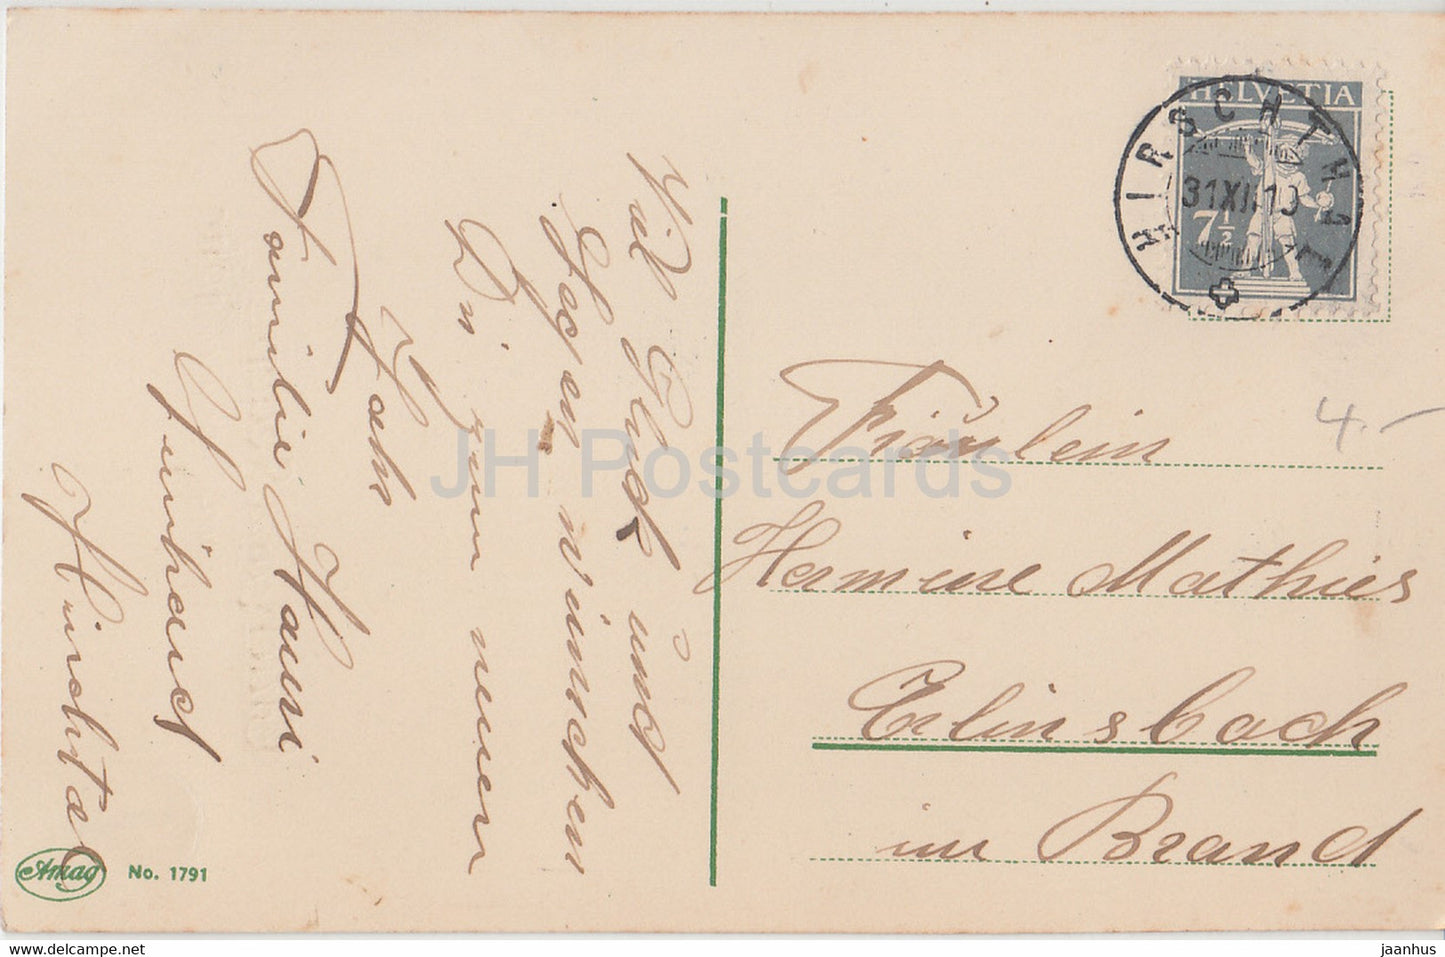 HELVETIA
7½
HIRSCHTHAL
31 XII 19
4.-
Fräulein
Hermine Mathies
Erlinsbach
im Brand
Viel Glück und
Segen wünschen
Dir zum neuen
Jahr
Familie Hauri
Hirschtal
Amag
No. 1791
JH Postcards
www.delcampe.net
jaanhus